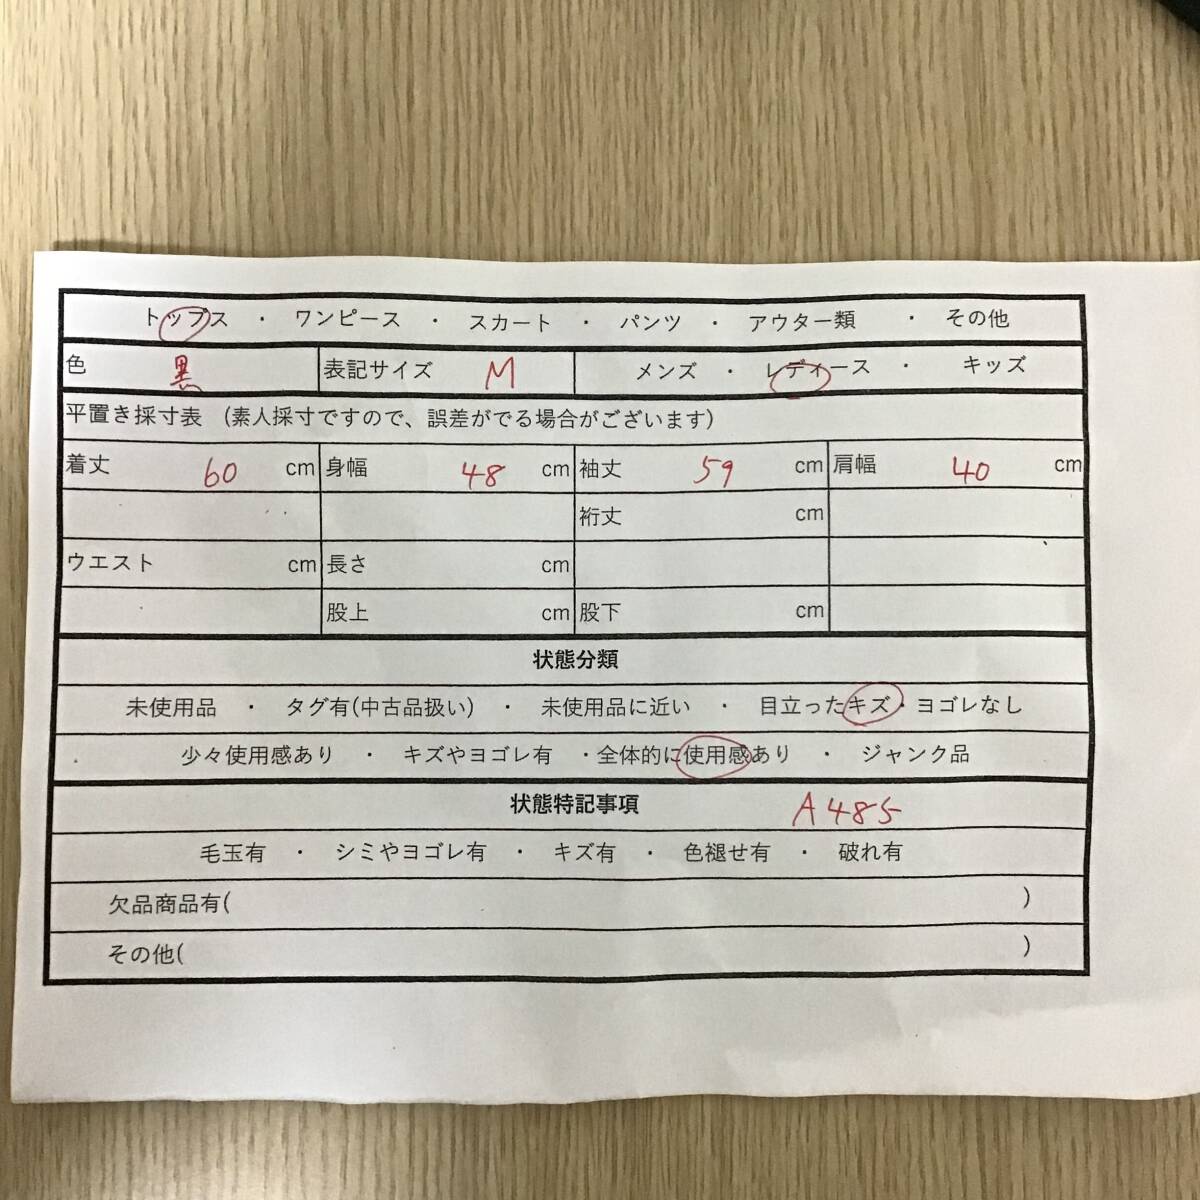 トップス ・ ワンピース ・ スカート ・ パンツ ・ アウター類 ・ その他
色 黒 表記サイズ M メンズ ・ レディース ・ キッズ
平置き採寸表 (素人採寸ですので、誤差がでる場合がございます)
着丈 60 cm 身幅 48 cm 袖丈 59 cm 肩幅 40 cm
裄丈 cm
ウエスト cm 長さ cm
股上 cm 股下 cm
状態分類
未使用品 ・ タグ有(中古品扱い) ・ 未使用品に近い ・ 目立ったキズ・ヨゴレなし
少々使用感あり ・ キズやヨゴレ有 ・全体的に使用感あり ・ ジャンク品
状態特記事項 A485
毛玉有 ・ シミやヨゴレ有 ・ キズ有 ・ 色褪せ有 ・ 破れ有
欠品商品有( )
その他( )